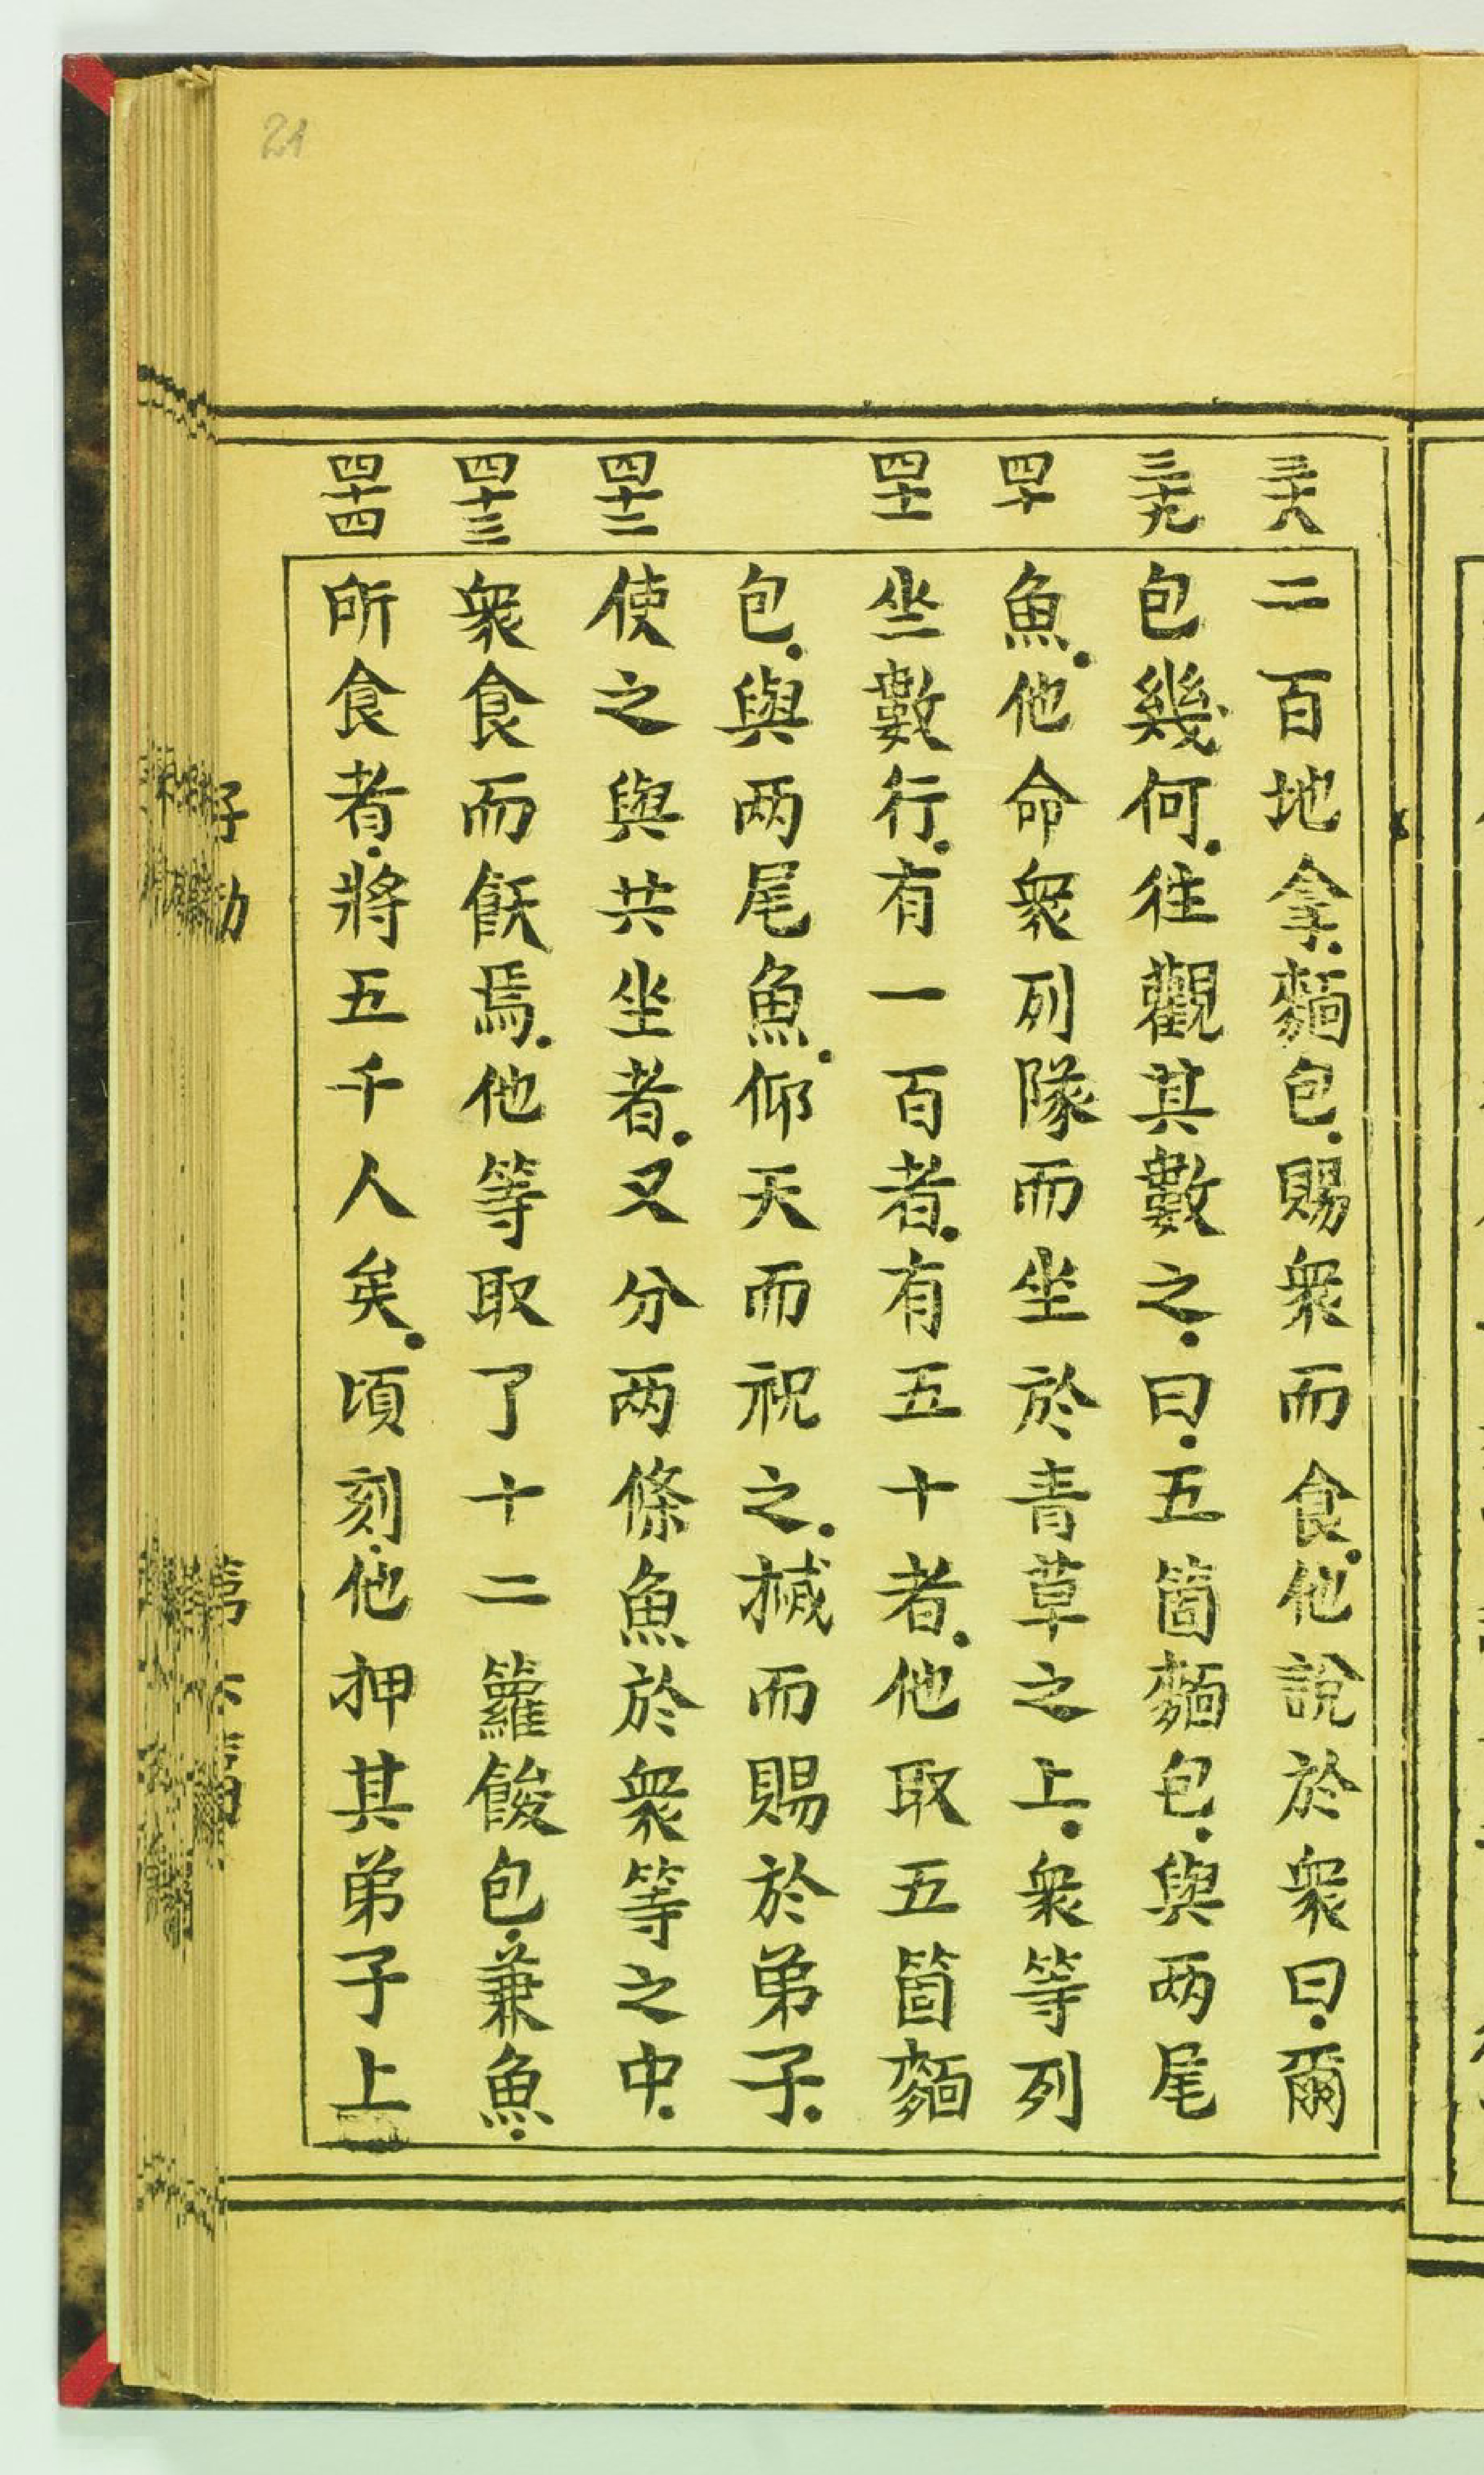 21
三十八
二百地拿。麵包。賜衆而食。他說於衆曰。爾
三十九
包幾何。往觀其數之。曰。五箇麵包。與两尾
四十
魚。他命衆列隊而坐於青草之上。衆等列
四十一
坐數行。有一百者。有五十者。他取五箇麵
包。與两尾魚。仰天而祝之。搣而賜於弟子。
四十二
使之與共坐者。又分两條魚於衆等之中。
四十三
衆食而飫焉。他等取了十二籮餕包。兼魚。
四十四
所食者。將五千人矣。頃刻。他押其弟子上